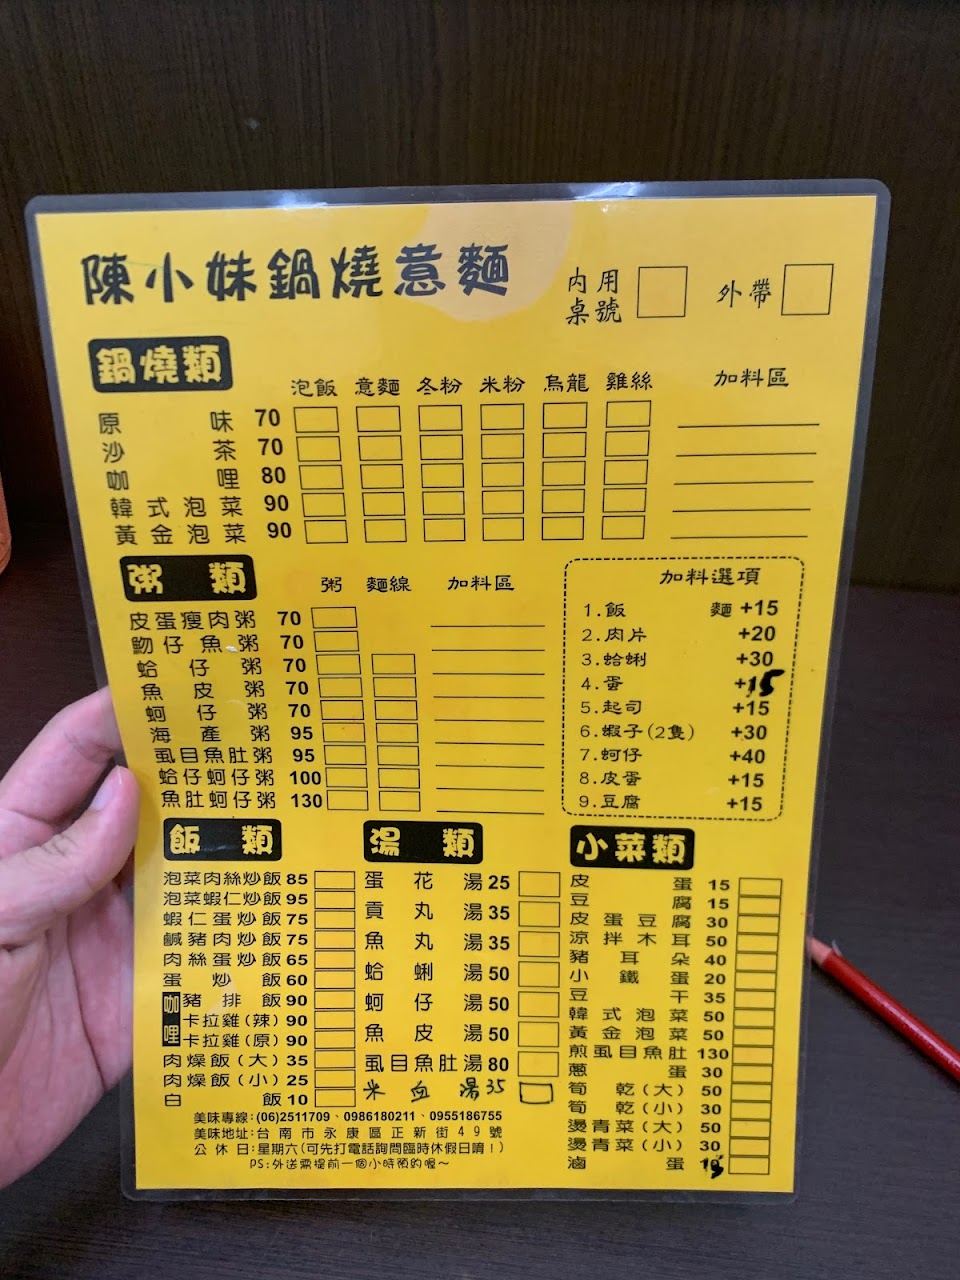 陳小妹鍋燒意麵
內用桌號 外帶
鍋燒類
泡飯 意麵 冬粉 米粉 烏龍 雞絲 加料區
原味 70
沙茶 70
咖哩 80
韓式泡菜 90
黃金泡菜 90
粥類 粥 麵線 加料區
皮蛋瘦肉粥 70
魩仔魚粥 70
蛤仔粥 70
魚皮粥 70
蚵仔粥 70
海產粥 95
虱目魚肚粥 95
蛤仔蚵仔粥 100
魚肚蚵仔粥 130
加料選項
1.飯 麵 +15
2.肉片 +20
3.蛤蜊 +30
4.蛋 +15
5.起司 +15
6.蝦子(2隻) +30
7.蚵仔 +40
8.皮蛋 +15
9.豆腐 +15
飯類
泡菜肉絲炒飯 85
泡菜蝦仁炒飯 95
蝦仁蛋炒飯 75
鹹豬肉炒飯 75
肉絲蛋炒飯 65
蛋炒飯 60
咖哩
豬排飯 90
卡拉雞(辣) 90
卡拉雞(原) 90
肉燥飯(大) 35
肉燥飯(小) 25
白飯 10
湯類
蛋花湯 25
貢丸湯 35
魚丸湯 35
蛤蜊湯 50
蚵仔湯 50
魚皮湯 50
虱目魚肚湯 80
米血湯 35
小菜類
皮蛋 15
豆腐 15
皮蛋豆腐 30
涼拌木耳 50
豬耳朵 40
小鐵蛋 20
豆干 35
韓式泡菜 50
黃金泡菜 50
煎虱目魚肚 130
蔥蛋 30
筍乾(大) 50
筍乾(小) 30
燙青菜(大) 50
燙青菜(小) 30
滷蛋 15
美味專線:(06)2511709、0986180211、0955186755
美味地址:台南市永康區正新街49號
公休日:星期六(可先打電話詢問臨時休假日唷！)
PS:外送需提前一個小時預約喔～